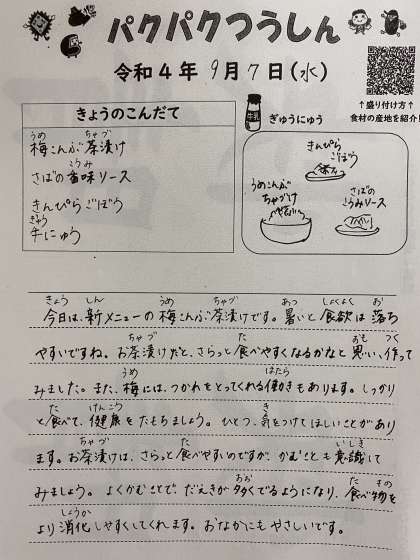 パクパクつうしん
令和4年 9月7日(水)
↑盛り付け方↑
食材の産地を紹介!
きょうのこんだて
うめ ちゃづ
梅こんぶ茶漬け
こうみ
さばの香味ソース
きんぴらごぼう
ぎゅう
牛にゅう
牛乳
ぎゅうにゅう
きんぴら
ごぼう
うめこんぶ
ちゃづけ
さばの
こうみソース
きょう しん うめ ちゃづ あつ しょくよく お
今日は、新メニューの梅こんぶ茶漬けです。暑いと食欲は落ち
ちゃづ た おも つく
やすいですね。お茶漬けだと、さらっと食べやすくなるかなと思い、作って
うめ はたら
みました。また、梅には、つかれをとってくれる働きもあります。しっかり
た けんこう き
と食べて、健康をたもちましょう。ひとつ、気をつけてほしいことがあり
ちゃづ た いしき
ます。お茶漬けは、さらっと食べやすいのですが、かむことも意識して
おお た もの
みましょう。よくかむことで、だえきが多くでるようになり、食べ物を
しょうか
より消化しやすくしてくれます。おなかにもやさしいです。